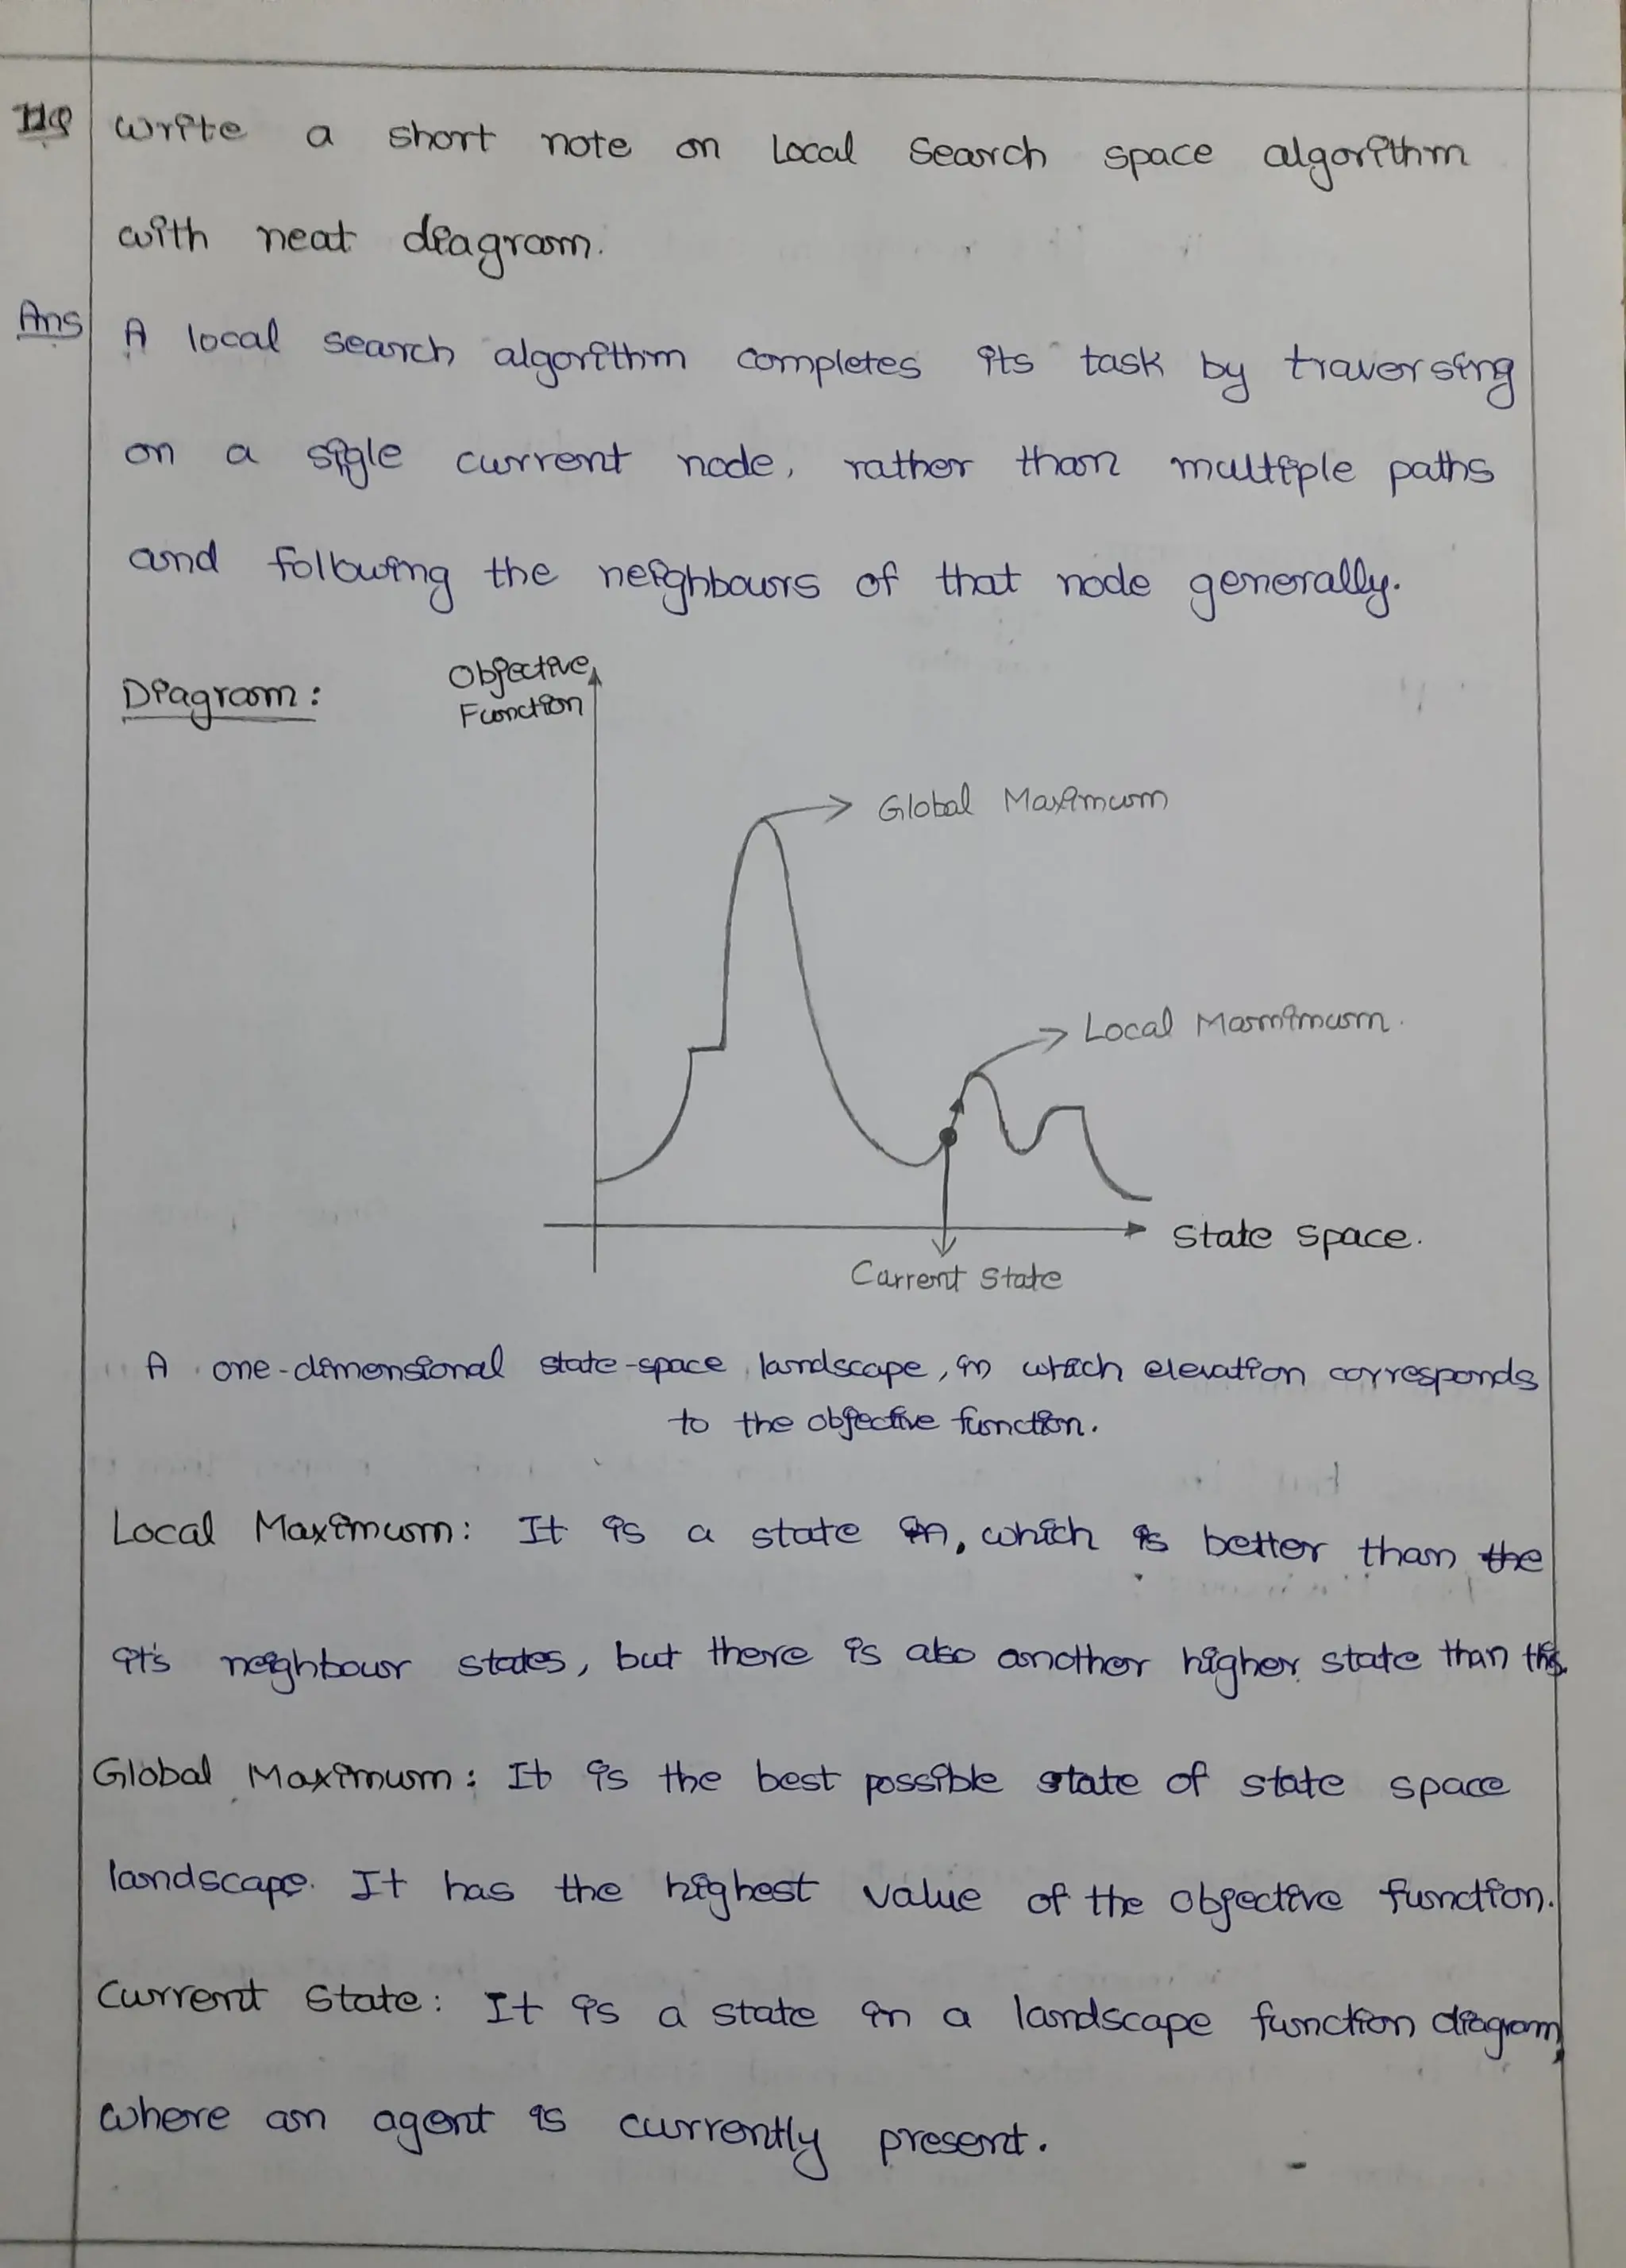 Write a short note on Local Search space algorithm
with neat diagram.
Ans A local search algorithm completes its task by traversing
on a sigle current node, rather than multiple paths
and following the neighbours of that node generally.
Diagram:
Objective
Function
Global Maximum
Local Mamimum.
State Space.
Current State
A one-dimensional state-space landscape, in which elevation corresponds
to the objective function.
Local Maximum: It is a state in, which is better than the
it's neighbour states, but there is also another higher state than this.
Global Maximum: It is the best possible state of state space
landscape. It has the highest value of the objective function.
Current State: It is a state in a landscape function diagram,
where an agent is currently present.